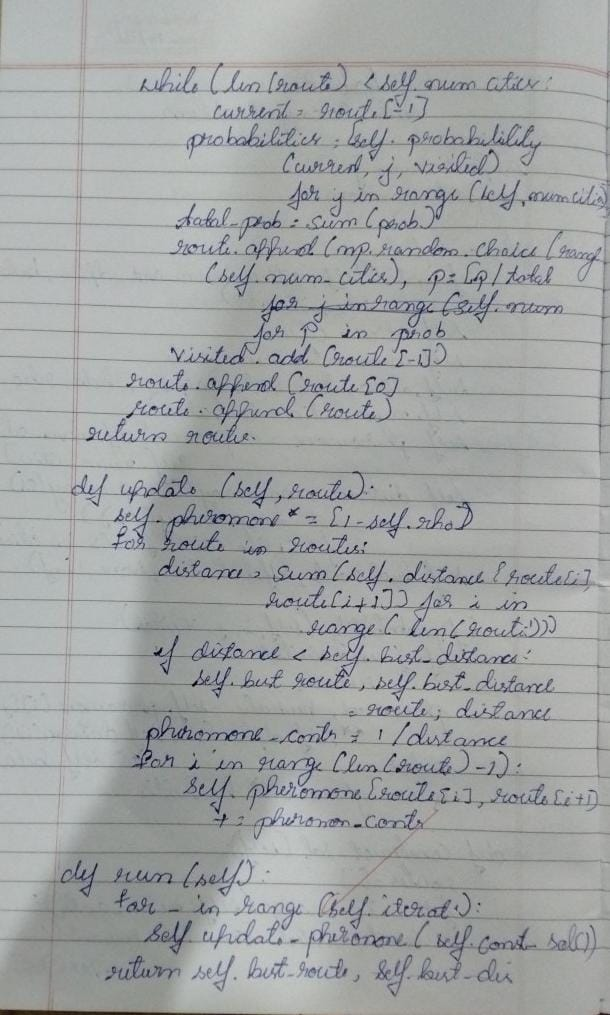 while (len(route) < self.num cities:
current = route[-1]
probabilities = [self. probabilility
(current, j, visited)
for j in range (self.num citie
total-prob = sum (prob)
route.append (np.random.choice (rang
(self.num-cities), p = [p/total
for j in range (self.num
for p in prob
visited.add (route[-1])
route.append (route[0]
route.append (route)
return route.
def update (self, routes):
self.pheromone *= [1-self.rho]
for route in routes:
distance = sum(self.distance [route[i],
route[i+1]]) for i in
range( len(route)))
if distance < self.best_distance:
self.best route, self.best_distance
= route, distance
pheromone_contr = 1/distance
for i in range (len(route)-1):
self.pheromone[route[i], route[i+1]
+= pheromon-contr
def run(self):
for - in range (self.iterat.):
self.update-pheromone( self.const-sol())
return self.best-route, self.best-dis